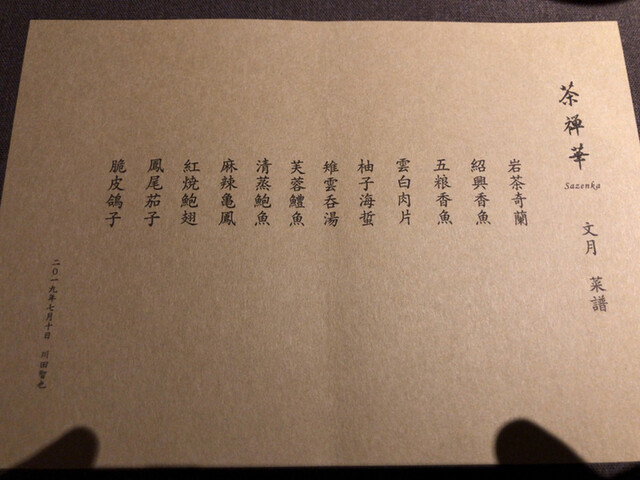 茶禅華
Sazenka
文月 菜譜
岩茶奇蘭
紹興香魚
五粮香魚
雲白肉片
柚子海蜇
雉雲呑湯
芙蓉鱧魚
清蒸鮑魚
麻辣亀鳳
紅焼鮑翅
鳳尾茄子
脆皮鴿子
二〇一九年七月十日 川田智也